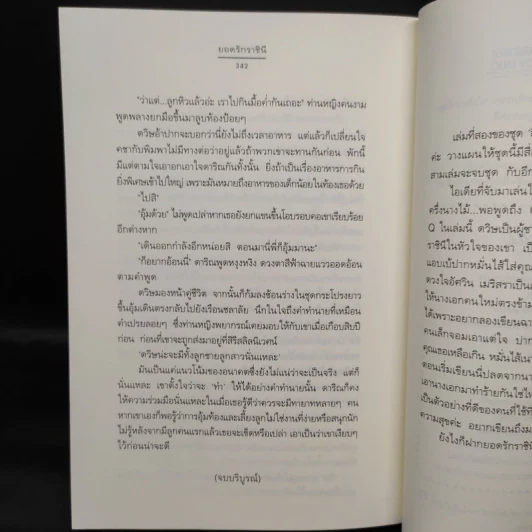 ยอดรักราชินี
343
"ว่าแต่...ลูกหิวแล้วอ่ะ เราไปกินมื้อค่ำกันเถอะ" ท่านหญิงคนงาม
พูดพลางยกมือขึ้นมาลูบท้องป้อยๆ
ดวิษอ้าปากจะบอกว่านี่ยังไม่ถึงเวลาอาหาร แต่แล้วก็เปลี่ยนใจ
คชากับพิมพาไม่มีทางต่อว่าอยู่แล้วถ้าพวกเขาจะทานกันก่อน พักนี้
มีแต่ตามใจเอาอกเอาใจดาริณกันทั้งนั้น ยิ่งถ้าเป็นเรื่องอาหารการกิน
ยิ่งพิเศษเข้าไปใหญ่ เพราะมันหมายถึงอาหารของเด็กน้อยในท้องเธอด้วย
"ไปสิ"
"อุ้มด้วย" ไม่พูดเปล่าหากเธอยังยกแขนขึ้นโอบรอบคอเขาเรียบร้อย
อีกต่างหาก
"เดินออกกำลังอีกหน่อยสิ ตอนมานี่พี่ก็อุ้มมานะ"
"ก็อยากอ้อนนี่" ดาริณพูดหงุงหงิง ดวงตาสีฟ้าฉายแววออดอ้อน
ตามคำพูด
ดวิษมองหน้าคู่ชีวิต จากนั้นก็ก้มลงช้อนร่างในชุดกระโปรงยาว
ขึ้นอุ้มเดินตรงกลับไปยังเรือนชลาลัย นึกในใจถึงคำทำนายที่เหมือน
คำเปรยลอยๆ ซึ่งท่านหญิงพยากรณ์เคยมอบให้กับเขาเมื่อเกือบสิบปี
ก่อน ก่อนที่เขาจะถูกส่งมาอยู่ที่สิริสลิลนิเวศน์
'ดวิษน่ะจะมีทั้งลูกชายลูกสาวนั่นแหละ'
มันเป็นแค่แนวโน้มของอนาคตซึ่งยังไม่แน่ว่าจะเป็นจริง แต่ก็
นั่นแหละ เขาตั้งใจว่าจะ 'ทำ' ให้ได้อย่างคำทำนายนั้น ดาริณก็คง
ให้ความร่วมมือนั่นแหละในเมื่อเธอรู้ดีว่าควรจะมีทายาทหลายๆ คน
หากเขาเองก็พอรู้ว่าการอุ้มท้องและเลี้ยงลูกไม่ใช่งานที่ง่ายหรือสนุกนัก
ไม่รู้หลังจากมีลูกคนแรกแล้วเธอจะเข็ดหรือเปล่า เอาเป็นว่าเขาเงียบๆ
ไว้ก่อนน่าจะดี
(จบบริบูรณ์)
เล่มที่สองของชุด
ค่ะ วางแผนให้ชุดนี้มีสี่
สามเล่มจะจบชุด กับอีก
ไอเดียที่จับมาเล่นใ
ครึ่งนางไม้...พอพูดถึง
Q ในเล่มนี้ ดวิษเป็นผู้ชา
ราชินีในหัวใจของเขา เป็
แอบเบ้ปากหมั่นไส้ใส่คุณ
ดวงใจอัศวิน เมริสราเป็นเ
ให้นางเอกคนใหม่ตรงข้าม
ได้เพราะอยากลองเขียนฉา
คนเล็กจอมเอาแต่ใจ ปาก
คุณเธอเหลือเกิน หมั่นไส้นา
ตอนเริ่มเขียนนี่ปลดจากนา
เอานางเอกมาทำร้ายกันใช่ไห
เป็นตัวอย่างที่ดีของคนที่ใช้ที่
ความสุขค่ะ อยากเขียนถึงม
ยังไงก็ฝากยอดรักราชินี